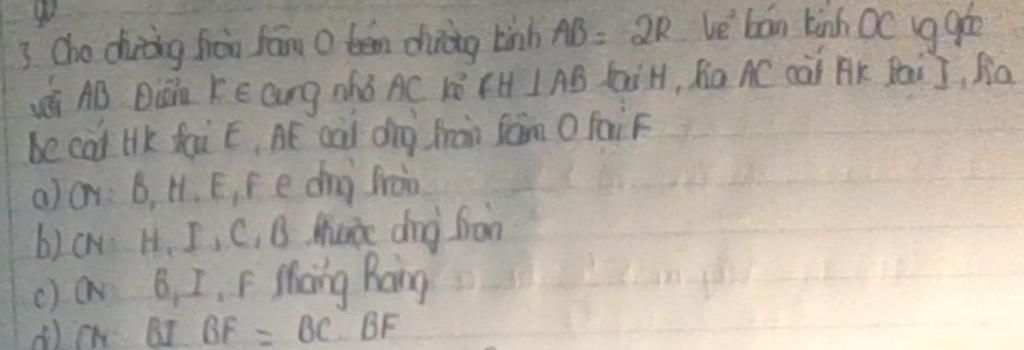 3. Cho đường tròn tâm O đường kính AB = 2R Vẽ bán kính OC vg góc
với AB Điểm K ∈ cung nhỏ AC kẻ KH ⊥ AB tại H, tia AC cắt HK tại I, tia
BC cắt HK tại E, AE cắt đng tròn tâm O tại F
a) CM: B, H, E, F ∈ đng tròn
b) CM: H, I, C, B thuộc đng tròn
c) CM B, I, F thẳng hàng
d) CM BI BF = BC. BF